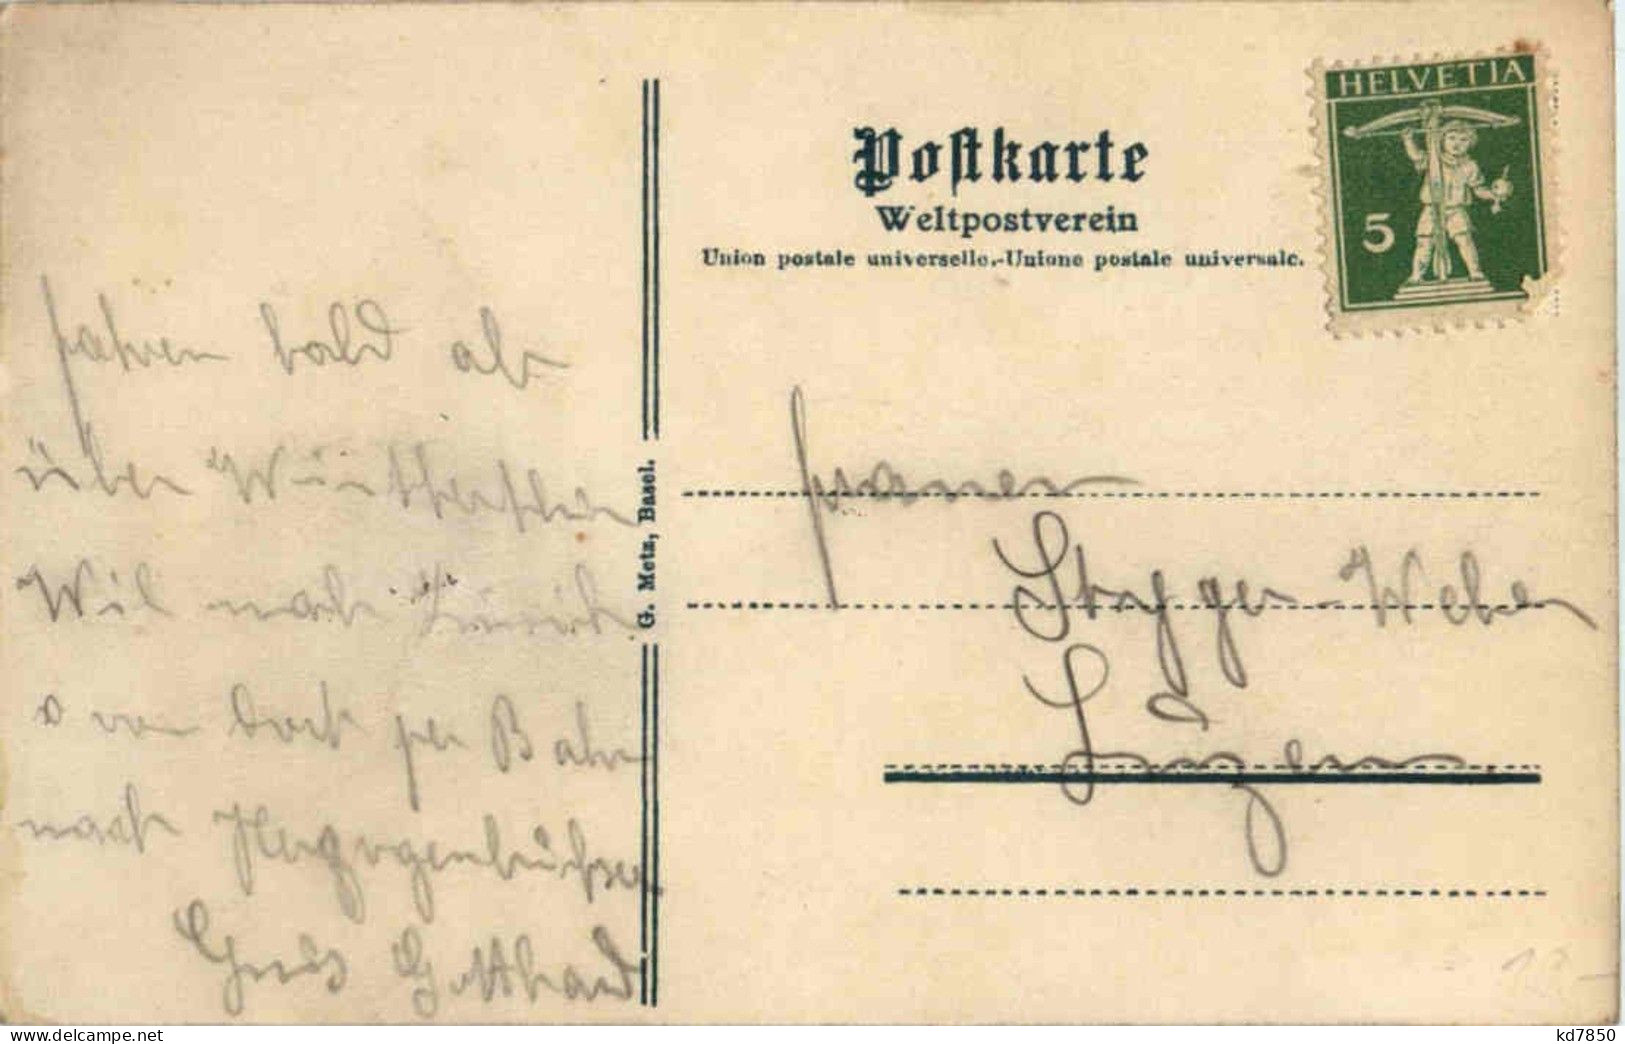 HELVETIA
5
Postkarte
Weltpostverein
Union postale universelle.-Unione postale universale.
G. Metz, Basel.
fahren bald ab
über Winterthur
Wil nach Zürich
von dort per Bahn
nach Herzogenbuchsee
Gruss Gotthard
Frauen
Weber
Luzern
kd7850